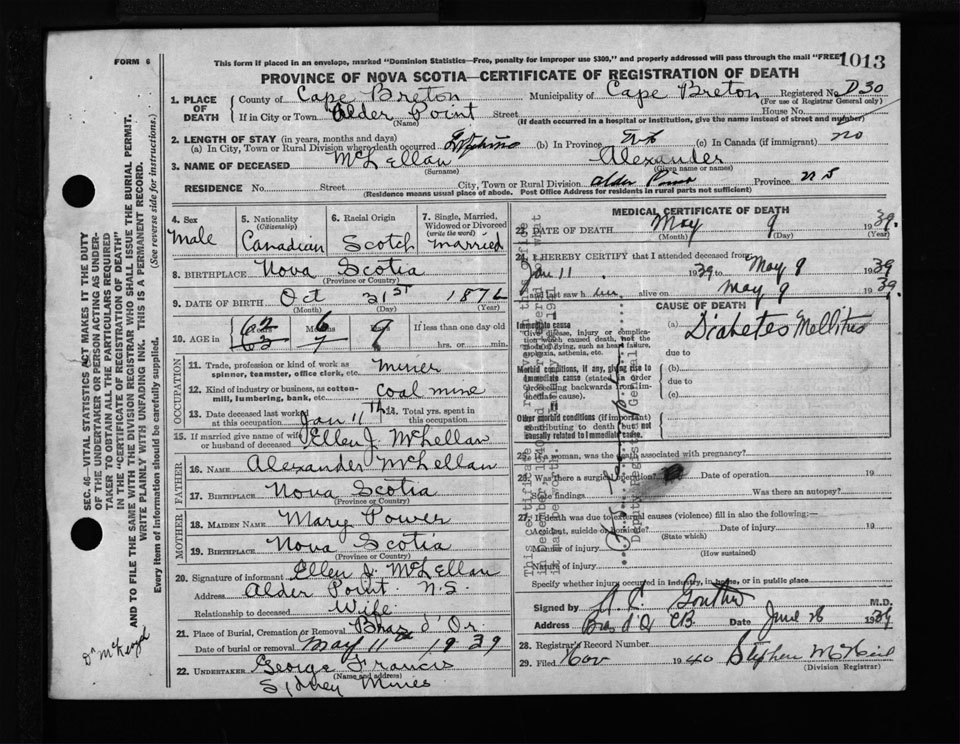 FORM 6
This form if placed in an envelope, marked "Dominion Statistics—Free, penalty for improper use $300," and properly addressed will pass through the mail "FREE"
1013
PROVINCE OF NOVA SCOTIA—CERTIFICATE OF REGISTRATION OF DEATH
1. PLACE OF DEATH
County of Cape Breton Municipality of Cape Breton Registered No. D30
(For use of Registrar General only)
If in City or Town Alder Point Street House No.
(Name) (If death occurred in a hospital or institution, give the name instead of street and number)
2. LENGTH OF STAY (in years, months and days)
(a) In City, Town or Rural Division where death occurred Lifetime (b) In Province (c) In Canada (if immigrant) no
3. NAME OF DECEASED McLellan Alexander
(Surname) (Given name or names)
RESIDENCE No. Street City, Town or Rural Division Alder Point Province N S
(Residence means usual place of abode. Post Office Address for residents in rural parts not sufficient)
4. Sex
Male
5. Nationality
(Citizenship)
Canadian
6. Racial Origin
Scotch
7. Single, Married, Widowed or Divorced
(write the word)
married
8. BIRTHPLACE Nova Scotia
(Province or Country)
9. DATE OF BIRTH Oct 31st 1876
(Month) (Day) (Year)
10. AGE in 62 6
63 7
If less than one day old
hrs. or min.
OCCUPATION
11. Trade, profession or kind of work as spinner, teamster, office clerk, etc. miner
12. Kind of industry or business, as cotton-mill, lumbering, bank, etc. coal mine
13. Date deceased last worked at this occupation Jan 11th
14. Total yrs. spent in this occupation
15. If married give name of wife or husband of deceased Ellen J. McLellan
FATHER
16. NAME Alexander McLellan
17. BIRTHPLACE Nova Scotia
(Province or Country)
MOTHER
18. MAIDEN NAME Mary Power
19. BIRTHPLACE Nova Scotia
(Province or Country)
20. Signature of informant Ellen J. McLellan
Address Alder Point N.S.
Relationship to deceased Wife
21. Place of Burial, Cremation or Removal Bras d'Or
Date of burial or removal May 11th 1939
22. UNDERTAKER George Francis
(Name and address)
Sydney Mines
MEDICAL CERTIFICATE OF DEATH
23. DATE OF DEATH May 9 1939
(Month) (Day) (Year)
24. I HEREBY CERTIFY that I attended deceased from
Jan 11 1939 to May 9 1939
and last saw him alive on May 9 1939.
CAUSE OF DEATH
Immediate cause
Give disease, injury or complication which caused death, not the mode of dying, such as heart failure, asphyxia, asthenia, etc.
(a) Diabetes Mellitus
due to
Morbid conditions, if any, giving rise to immediate cause (stated in order proceeding backwards from immediate cause)
(b)
due to
(c)
Other morbid conditions (if important) contributing to death but not causally related to immediate cause.
25. If a woman, was the death associated with pregnancy?
26. Was there a surgical operation? Date of operation 19
State findings Was there an autopsy?
27. If death was due to external causes (violence) fill in also the following:—
Accident, suicide or homicide? Date of injury 19
(State which)
Manner of injury
(How sustained)
Nature of injury
Specify whether injury occurred in industry, in home, or in public place
Signed by M.D.
Address Bras d'Or CB Date June 28 1939
28. Registrar's Record Number
29. Filed Nov 1940 Stephen McNeil
(Division Registrar)
SEC. 46—VITAL STATISTICS ACT MAKES IT THE DUTY
OF THE UNDERTAKER OR PERSON ACTING AS UNDERTAKER TO OBTAIN ALL THE PARTICULARS REQUIRED
IN THE "CERTIFICATE OF REGISTRATION OF DEATH"
AND TO FILE THE SAME WITH THE DIVISION REGISTRAR WHO SHALL ISSUE THE BURIAL PERMIT.
WRITE PLAINLY WITH UNFADING INK. THIS IS A PERMANENT RECORD.
Every item of information should be carefully supplied. (See reverse side for instructions.)
Deputy Registrar General